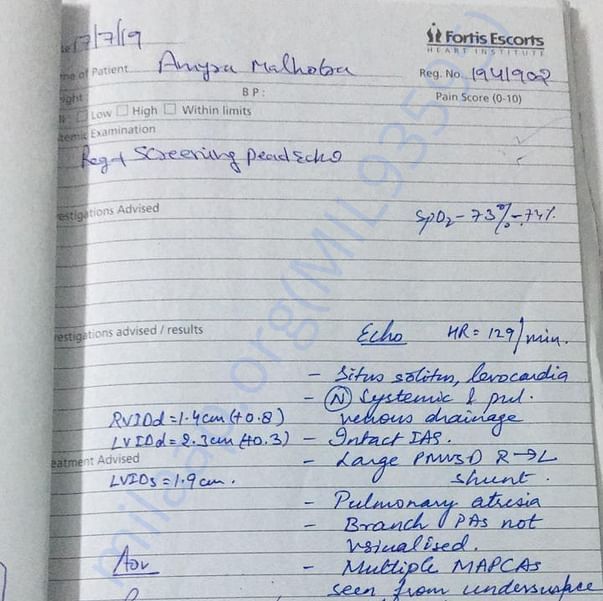 17/7/19
Fortis Escorts
HEART INSTITUTE
of Patient Anyra Malhotra
Reg. No. 1941902
B P :
Pain Score (0-10)
Low High Within limits
Examination
Reg Screening pead Echo
Investigations Advised
SpO₂ - 73% - 74%
Investigations advised / results
Echo HR = 129/min.
- Situs solitus, levocardia
- (N) Systemic & pul. venous drainage
RVIDd = 1.4cm (+0.8)
LVIDd = 2.3cm (+0.3) - Intact IAS.
Treatment Advised - Large PMVSD R→L shunt.
LVIDs = 1.9cm.
- Pulmonary atresia
- Branch PAs not visualised.
Adv - Multiple MAPCAs
seen from undersurface